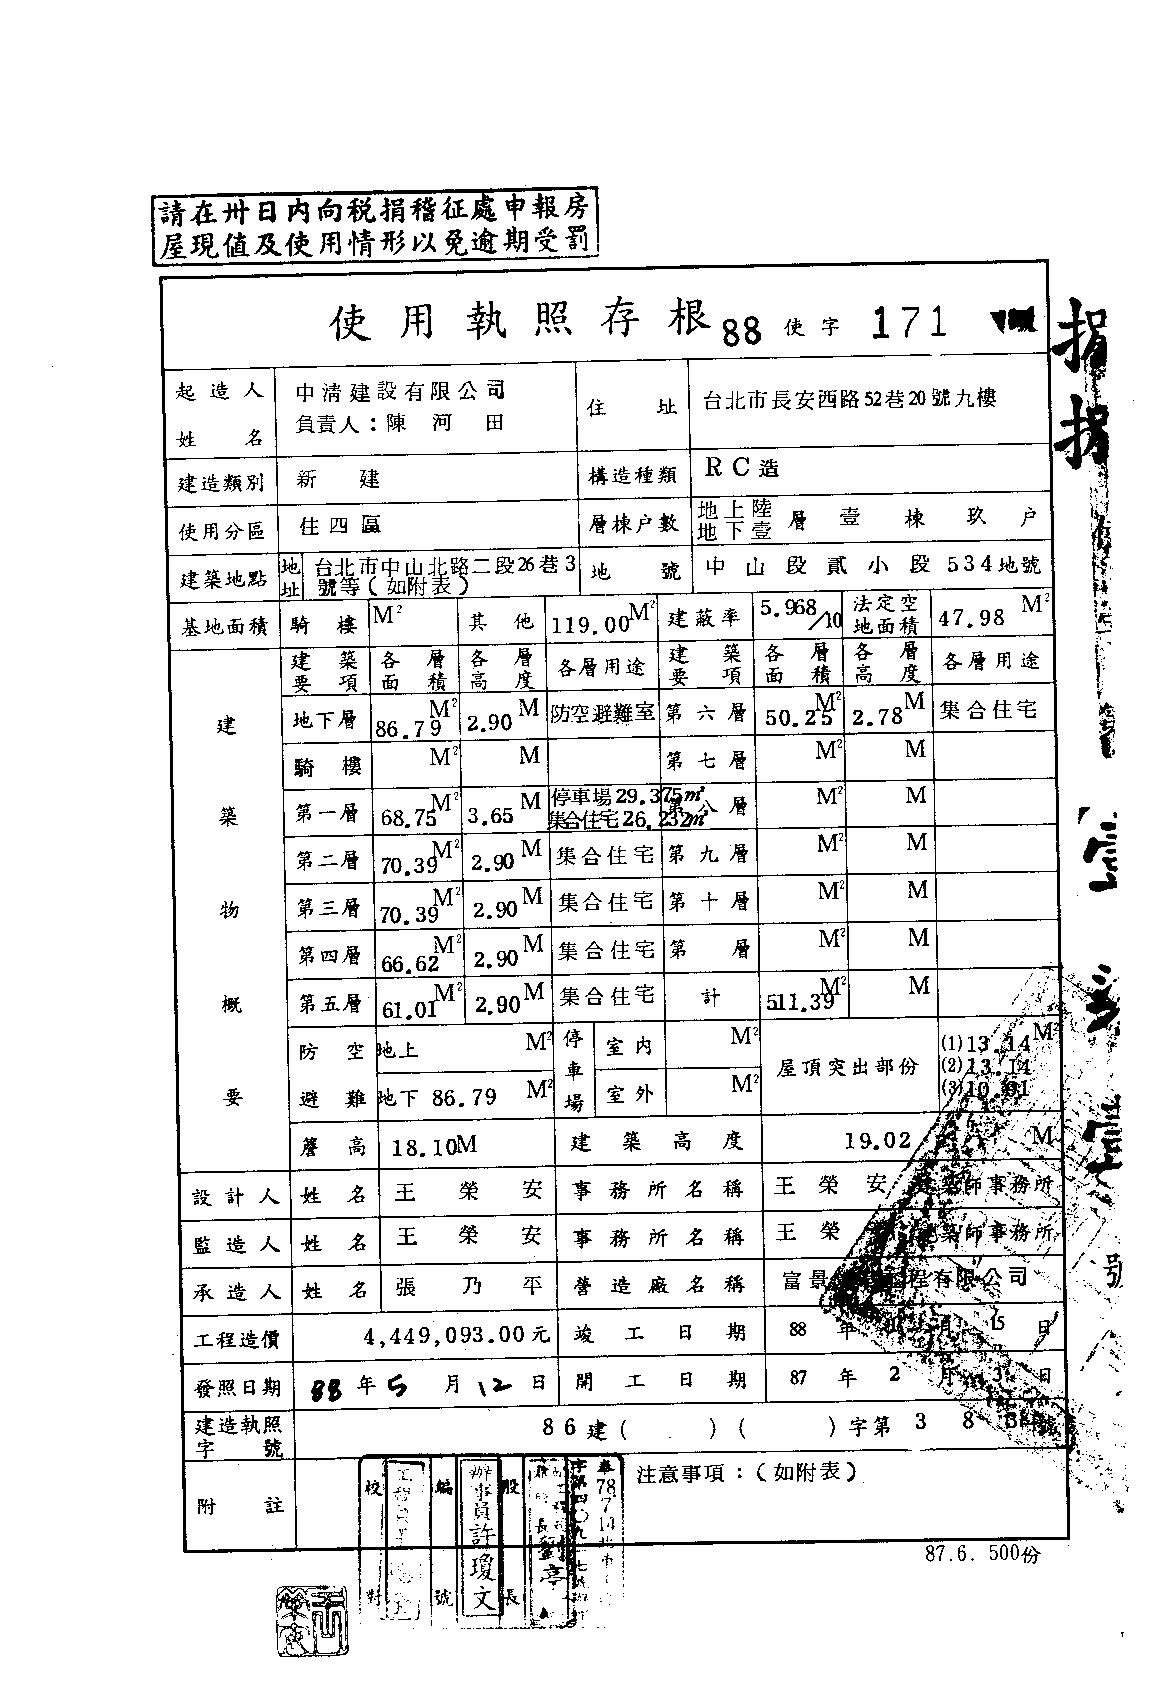 請在卅日內向稅捐稽征處申報房
屋現值及使用情形以免逾期受罰
使用執照存根 88 使字 171
起造人姓名 中淸建設有限公司
負責人：陳河田
住址 台北市長安西路52巷20號九樓
建造類別 新建 構造種類 RC造
使用分區 住四區 層棟户數 地上陸地下壹層壹棟玖户
建築地點 地址 台北市中山北路二段26巷3
號等（如附表）
地號 中山段貳小段534地號
基地面積 騎樓 M² 其他 119.00M² 建蔽率 5.968/10 法定空地面積 47.98 M²
建築物概要
建築要項 各層面積 各層高度 各層用途 建築要項 各層面積 各層高度 各層用途
地下層 86.79 M² 2.90 M 防空避難室 第六層 50.25 M² 2.78 M 集合住宅
騎樓 M² M 第七層 M² M
第一層 68.75 M² 3.65 M 停車場29.375㎡ 第八層 M² M
集合住宅26.232㎡
第二層 70.39 M² 2.90 M 集合住宅 第九層 M² M
第三層 70.39 M² 2.90 M 集合住宅 第十層 M² M
第四層 66.62 M² 2.90 M 集合住宅 第 層 M² M
第五層 61.01 M² 2.90 M 集合住宅 計 511.39 M² M
防空避難 地上 M² 停車場 室內 M² 屋頂突出部份 (1)13.14 M²
(2)13.14
地下 86.79 M² 室外 M² (3)10.81
簷高 18.10M 建築高度 19.02 M
設計人 姓名 王榮安 事務所名稱 王榮安建築師事務所
監造人 姓名 王榮安 事務所名稱 王榮 築師事務所
承造人 姓名 張乃平 營造廠名稱 富景 程有限公司
工程造價 4,449,093.00元 竣工日期 88年 月15日
發照日期 88年5月12日 開工日期 87年2月3日
建造執照字號 86建（ ）（ ）字第38 號
附註 注意事項：（如附表）
校對
編號 辦事員許瓊文
股長
87.6. 500份